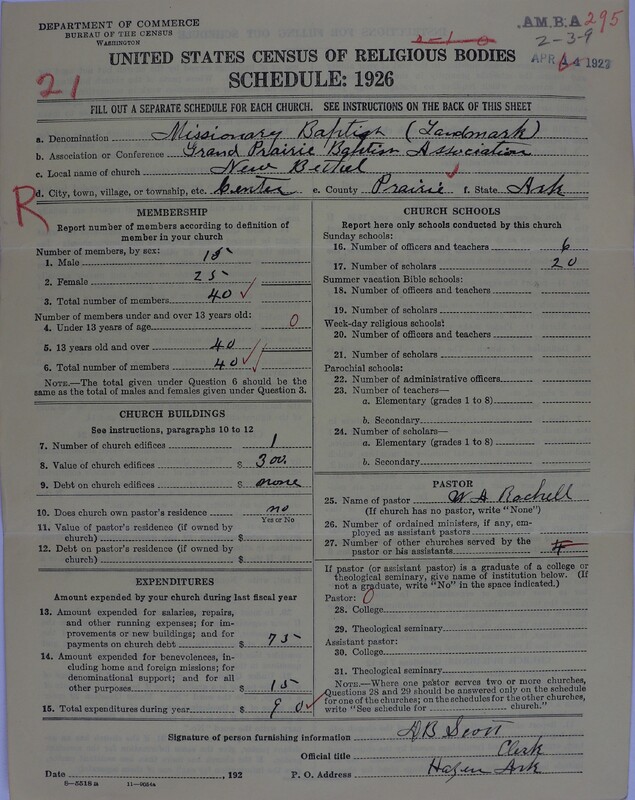 DEPARTMENT OF COMMERCE
BUREAU OF THE CENSUS
WASHINGTON
A.M.B.A 295
2-3-9
APR 1923
UNITED STATES CENSUS OF RELIGIOUS BODIES
21
SCHEDULE: 1926
FILL OUT A SEPARATE SCHEDULE FOR EACH CHURCH. SEE INSTRUCTIONS ON THE BACK OF THIS SHEET
a. Denomination Missionary Baptist (Landmark)
b. Association or Conference Grand Prairie Baptist Association
c. Local name of church New Bethel
d. City, town, village, or township, etc. Center e. County Prairie f. State Ark
R
MEMBERSHIP
Report number of members according to definition of
member in your church
Number of members, by sex:
1. Male 15
2. Female 25
3. Total number of members 40
Number of members under and over 13 years old:
4. Under 13 years of age 0
5. 13 years old and over 40
6. Total number of members 40
NOTE.—The total given under Question 6 should be the
same as the total of males and females given under Question 3.
CHURCH BUILDINGS
See instructions, paragraphs 10 to 12
7. Number of church edifices 1
8. Value of church edifices $ 300.
9. Debt on church edifices $ none
10. Does church own pastor's residence no
Yes or No
11. Value of pastor's residence (if owned by
church) $
12. Debt on pastor's residence (if owned by
church) $
EXPENDITURES
Amount expended by your church during last fiscal year
13. Amount expended for salaries, repairs,
and other running expenses; for im-
provements or new buildings; and for
payments on church debt $ 75
14. Amount expended for benevolences, in-
cluding home and foreign missions; for
denominational support; and for all
other purposes $ 15
15. Total expenditures during year $ 90
CHURCH SCHOOLS
Report here only schools conducted by this church
Sunday schools:
16. Number of officers and teachers 6
17. Number of scholars 20
Summer vacation Bible schools:
18. Number of officers and teachers
19. Number of scholars
Week-day religious schools:
20. Number of officers and teachers
21. Number of scholars
Parochial schools:
22. Number of administrative officers
23. Number of teachers—
a. Elementary (grades 1 to 8)
b. Secondary
24. Number of scholars—
a. Elementary (grades 1 to 8)
b. Secondary
PASTOR
25. Name of pastor W A Rochell
(If church has no pastor, write "None")
26. Number of ordained ministers, if any, em-
ployed as assistant pastors
27. Number of other churches served by the
pastor or his assistants
If pastor (or assistant pastor) is a graduate of a college or
theological seminary, give name of institution below. (If
not a graduate, write "No" in the space indicated.)
Pastor: 0
28. College
29. Theological seminary
Assistant pastor:
30. College
31. Theological seminary
NOTE.—Where one pastor serves two or more churches,
Questions 28 and 29 should be answered only on the schedule
for one of the churches; on the schedules for the other churches,
write "See schedule for church."
Signature of person furnishing information A B Scott
Official title Clerk
Date , 192 P. O. Address Hazen Ark
8—5518a 11—9054a